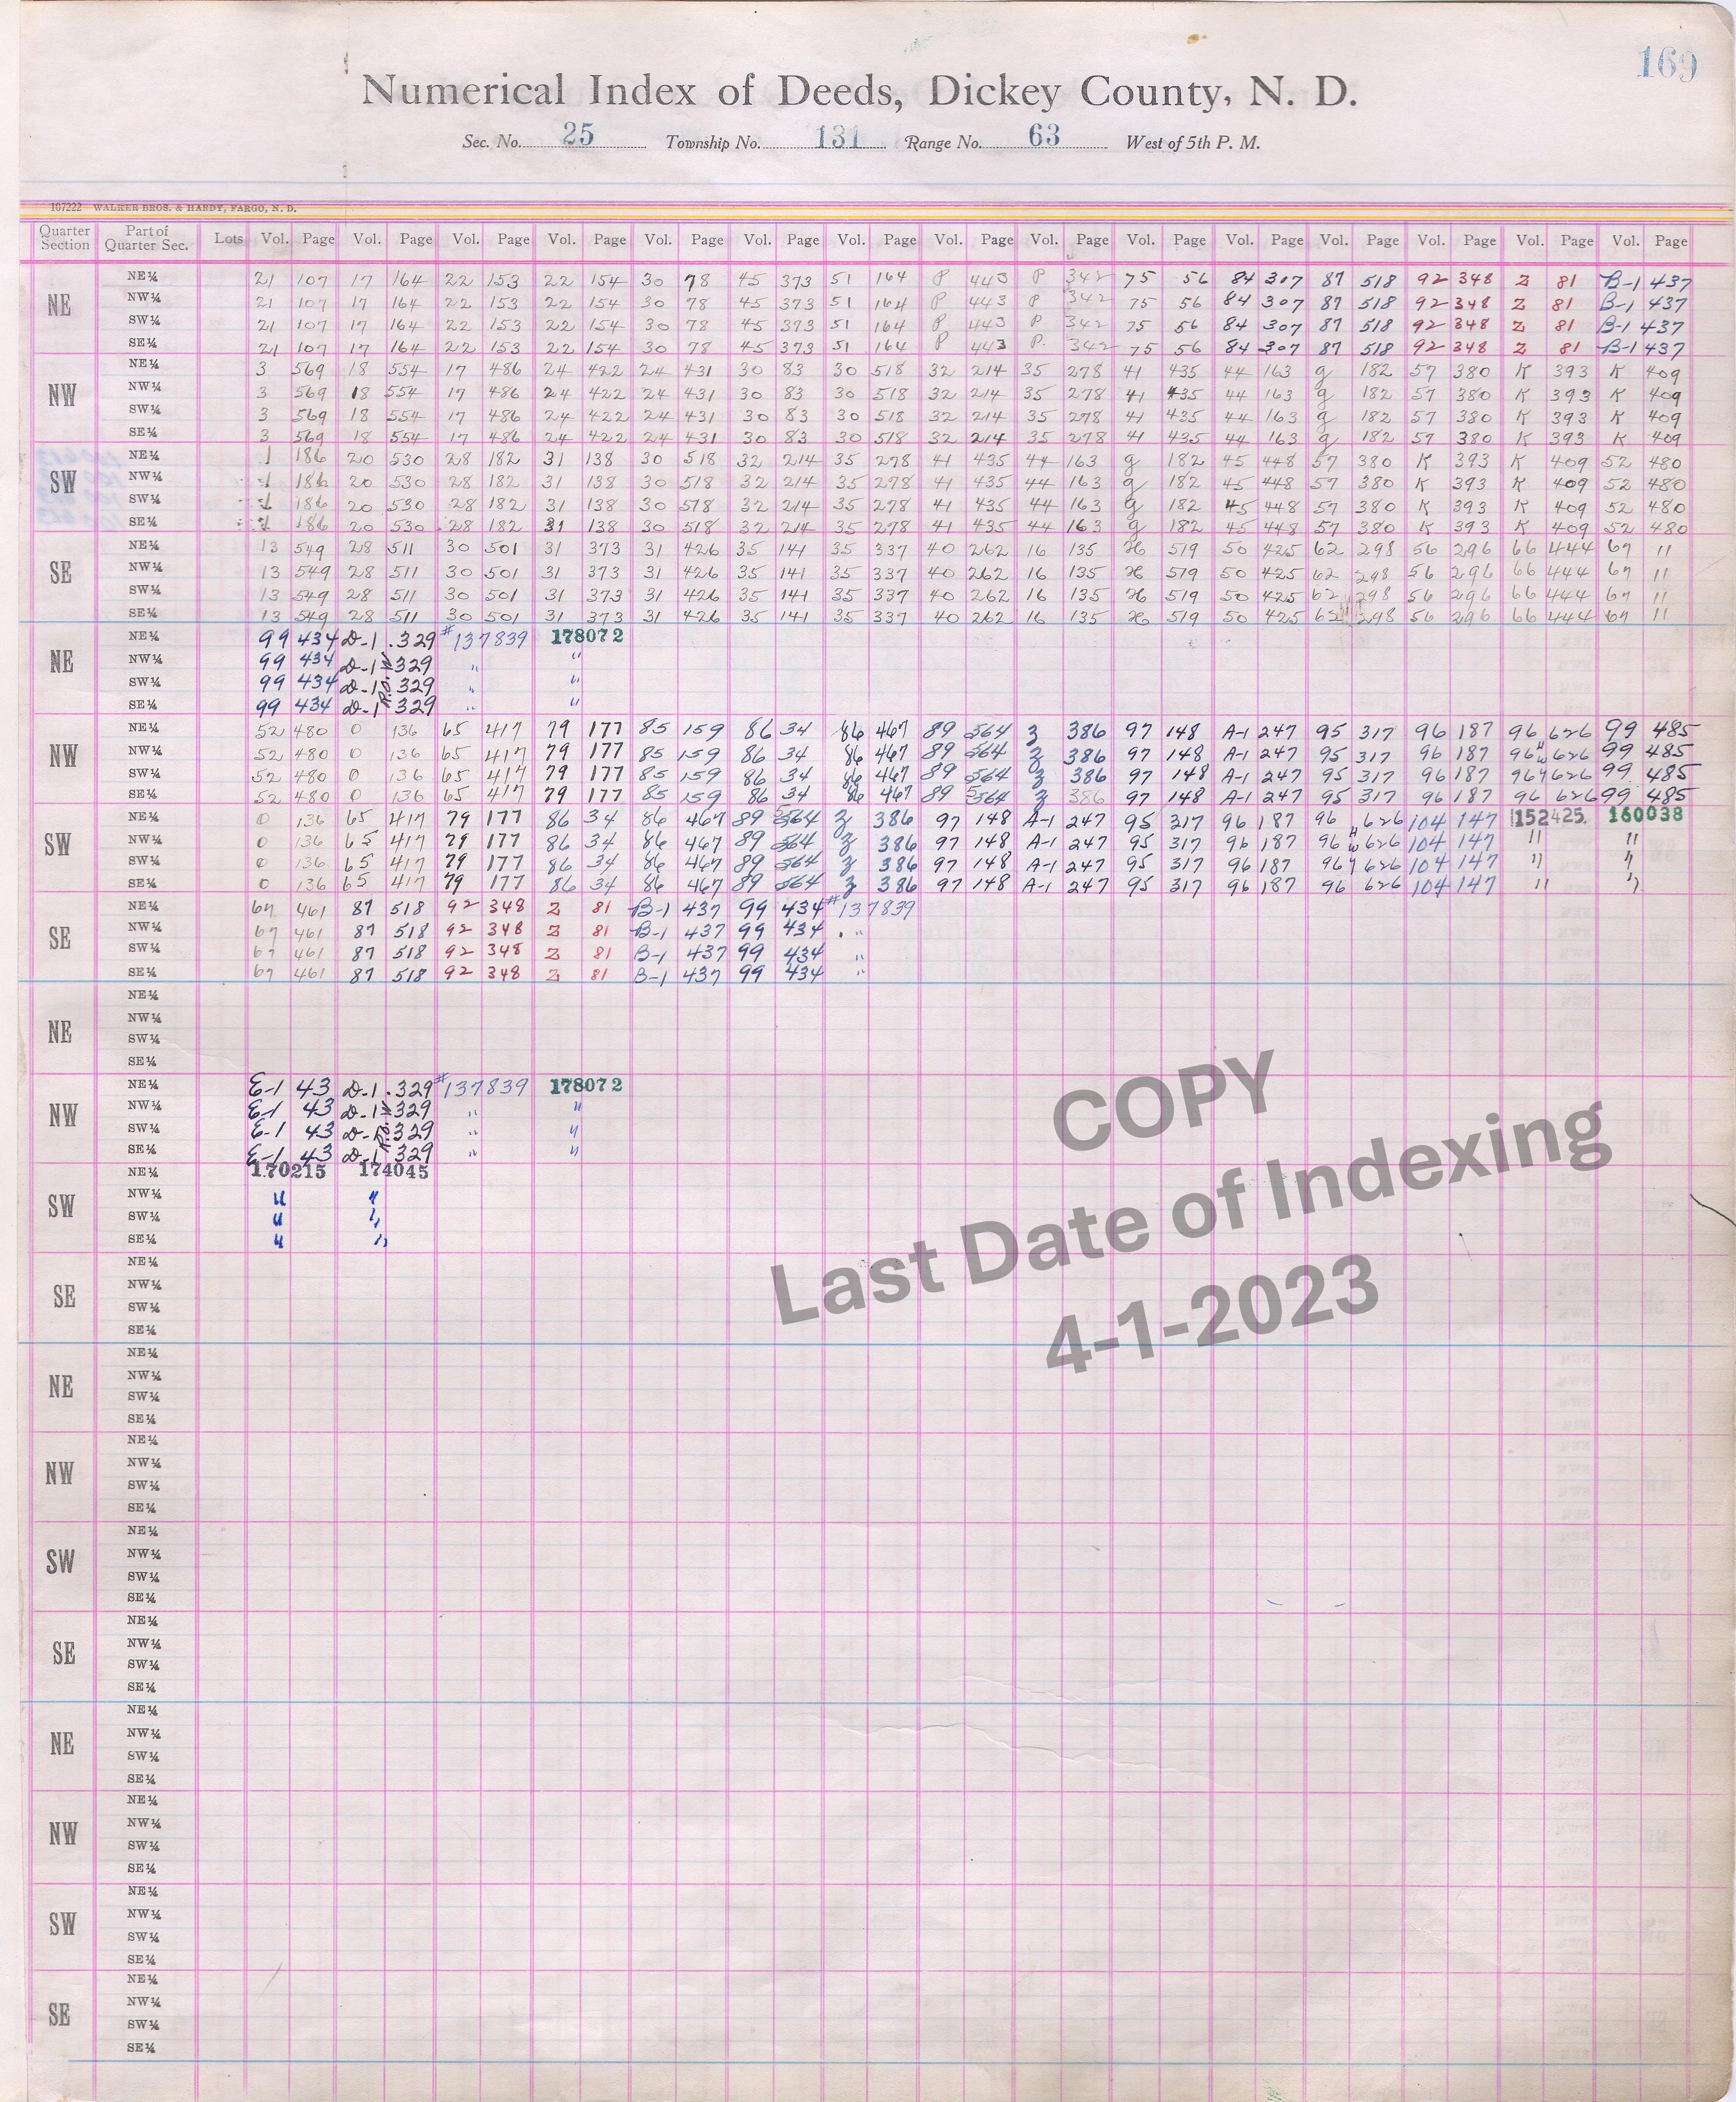 169
Numerical Index of Deeds, Dickey County, N. D.
Sec. No. 25 Township No. 131 Range No. 63 West of 5th P. M.
107222 WALKER BROS. & HARDY, FARGO, N. D.
Quarter Section Part of Quarter Sec. Lots Vol. Page Vol. Page Vol. Page Vol. Page Vol. Page Vol. Page Vol. Page Vol. Page Vol. Page Vol. Page Vol. Page Vol. Page Vol. Page Vol. Page Vol. Page
NE
NE¼ 21 107 17 164 22 153 22 154 30 78 45 373 51 164 P 443 P 342 75 56 84 307 87 518 92 348 Z 81 B-1 437
NW¼ 21 107 17 164 22 153 22 154 30 78 45 373 51 164 P 443 P 342 75 56 84 307 87 518 92 348 Z 81 B-1 437
SW¼ 21 107 17 164 22 153 22 154 30 78 45 373 51 164 P 443 P 342 75 56 84 307 87 518 92 348 Z 81 B-1 437
SE¼ 21 107 17 164 22 153 22 154 30 78 45 373 51 164 P 443 P. 342 75 56 84 307 87 518 92 348 Z 81 B-1 437
NW
NE¼ 3 569 18 554 17 486 24 422 24 431 30 83 30 518 32 214 35 278 41 435 44 163 g 182 57 380 K 393 K 409
NW¼ 3 569 18 554 17 486 24 422 24 431 30 83 30 518 32 214 35 278 41 435 44 163 g 182 57 380 K 393 K 409
SW¼ 3 569 18 554 17 486 24 422 24 431 30 83 30 518 32 214 35 278 41 435 44 163 g 182 57 380 K 393 K 409
SE¼ 3 569 18 554 17 486 24 422 24 431 30 83 30 518 32 214 35 278 41 435 44 163 g 182 57 380 K 393 K 409
SW
NE¼ 1 186 20 530 28 182 31 138 30 518 32 214 35 278 41 435 44 163 g 182 45 448 57 380 K 393 K 409 52 480
NW¼ 1 186 20 530 28 182 31 138 30 518 32 214 35 278 41 435 44 163 g 182 45 448 57 380 K 393 K 409 52 480
SW¼ 1 186 20 530 28 182 31 138 30 518 32 214 35 278 41 435 44 163 g 182 45 448 57 380 K 393 K 409 52 480
SE¼ 1 186 20 530 28 182 31 138 30 518 32 214 35 278 41 435 44 163 g 182 45 448 57 380 K 393 K 409 52 480
SE
NE¼ 13 549 28 511 30 501 31 373 31 426 35 141 35 337 40 262 16 135 519 50 425 62 298 56 296 66 444 67 11
NW¼ 13 549 28 511 30 501 31 373 31 426 35 141 35 337 40 262 16 135 519 50 425 62 298 56 296 66 444 67 11
SW¼ 13 549 28 511 30 501 31 373 31 426 35 141 35 337 40 262 16 135 519 50 425 62 298 56 296 66 444 67 11
SE¼ 13 549 28 511 30 501 31 373 31 426 35 141 35 337 40 262 16 135 519 50 425 62 298 56 296 66 444 67 11
NE
NE¼ 99 434 D-1 329 #137839 178072
NW¼ 99 434 D-1 329 " "
SW¼ 99 434 D-1 329 " "
SE¼ 99 434 D-1 329 " "
NW
NE¼ 52 480 O 136 65 417 79 177 85 159 86 34 86 467 89 564 Z 386 97 148 A-1 247 95 317 96 187 96 626 99 485
NW¼ 52 480 O 136 65 417 79 177 85 159 86 34 86 467 89 564 Z 386 97 148 A-1 247 95 317 96 187 96 626 99 485
SW¼ 52 480 O 136 65 417 79 177 85 159 86 34 86 467 89 564 Z 386 97 148 A-1 247 95 317 96 187 96 626 99 485
SE¼ 52 480 O 136 65 417 79 177 85 159 86 34 86 467 89 564 Z 386 97 148 A-1 247 95 317 96 187 96 626 99 485
SW
NE¼ O 136 65 417 79 177 86 34 86 467 89 564 Z 386 97 148 A-1 247 95 317 96 187 96 626 104 147 152425 160038
NW¼ O 136 65 417 79 177 86 34 86 467 89 564 Z 386 97 148 A-1 247 95 317 96 187 96 626 104 147 " "
SW¼ O 136 65 417 79 177 86 34 86 467 89 564 Z 386 97 148 A-1 247 95 317 96 187 96 626 104 147 " "
SE¼ O 136 65 417 79 177 86 34 86 467 89 564 Z 386 97 148 A-1 247 95 317 96 187 96 626 104 147 " "
SE
NE¼ 67 461 87 518 92 348 Z 81 B-1 437 99 434 #137839
NW¼ 67 461 87 518 92 348 Z 81 B-1 437 99 434 "
SW¼ 67 461 87 518 92 348 Z 81 B-1 437 99 434 "
SE¼ 67 461 87 518 92 348 Z 81 B-1 437 99 434 "
NE
NE¼
NW¼
SW¼
SE¼
NW
NE¼ E-1 43 D-1 329 #137839 178072
NW¼ E-1 43 D-1 329 " "
SW¼ E-1 43 D-1 329 " "
SE¼ E-1 43 D-1 329 " "
SW
NE¼ 170215 174045
NW¼ " "
SW¼ " "
SE¼ " "
SE
NE¼
NW¼
SW¼
SE¼
NE
NE¼
NW¼
SW¼
SE¼
NW
NE¼
NW¼
SW¼
SE¼
SW
NE¼
NW¼
SW¼
SE¼
SE
NE¼
NW¼
SW¼
SE¼
NE
NE¼
NW¼
SW¼
SE¼
NW
NE¼
NW¼
SW¼
SE¼
SW
NE¼
NW¼
SW¼
SE¼
SE
NE¼
NW¼
SW¼
SE¼
COPY
Last Date of Indexing
4-1-2023